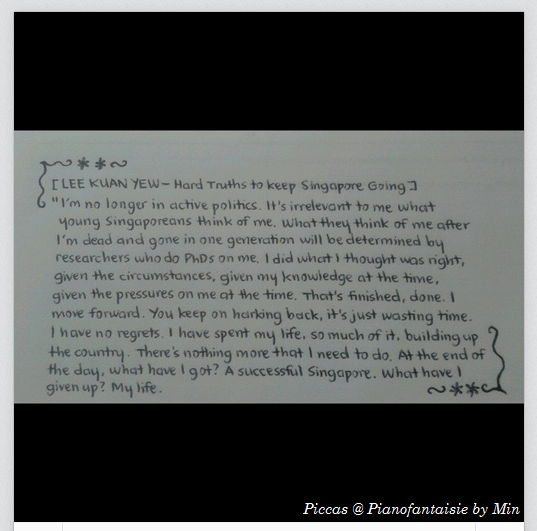 [LEE KUAN YEW - Hard Truths to keep Singapore Going]
"I'm no longer in active politics. It's irrelevant to me what
young Singaporeans think of me. What they think of me after
I'm dead and gone in one generation will be determined by
researchers who do PhDs on me. I did what I thought was right,
given the circumstances, given my knowledge at the time,
given the pressures on me at the time. That's finished, done. I
move forward. You keep on harking back, it's just wasting time.
I have no regrets. I have spent my life, so much of it, building up
the country. There's nothing more that I need to do. At the end of
the day, what have I got? A successful Singapore. What have I
given up? My life.
Piccas @ Pianofantaisie by Min